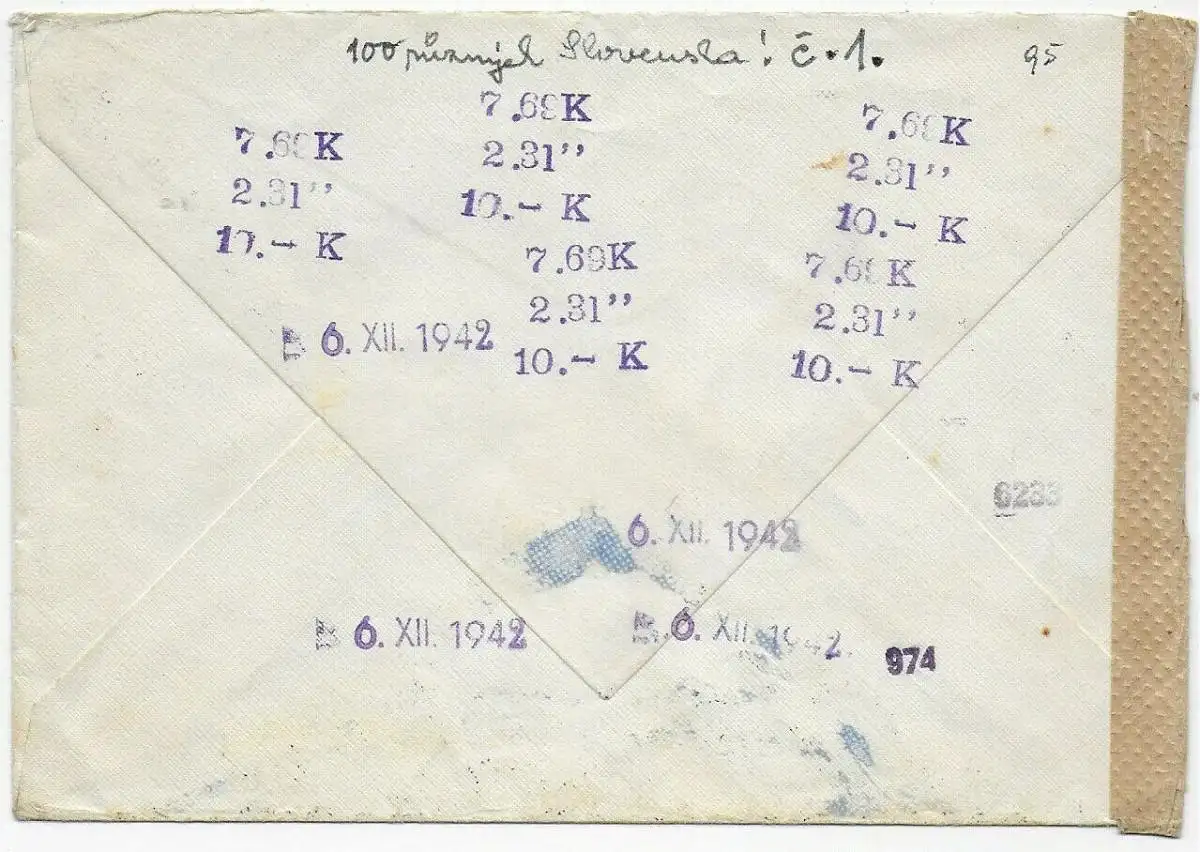 100 různých Slovenska! č.1.
95
7.69K
2.31”
10.- K
7.69K
2.31”
10.- K
7.69K
2.31”
10.- K
7.69K
2.31”
10.- K
7.69K
2.31”
10.- K
6. XII. 1942
6233
6. XII. 1942
6. XII. 1942
6. XII. 1942
974